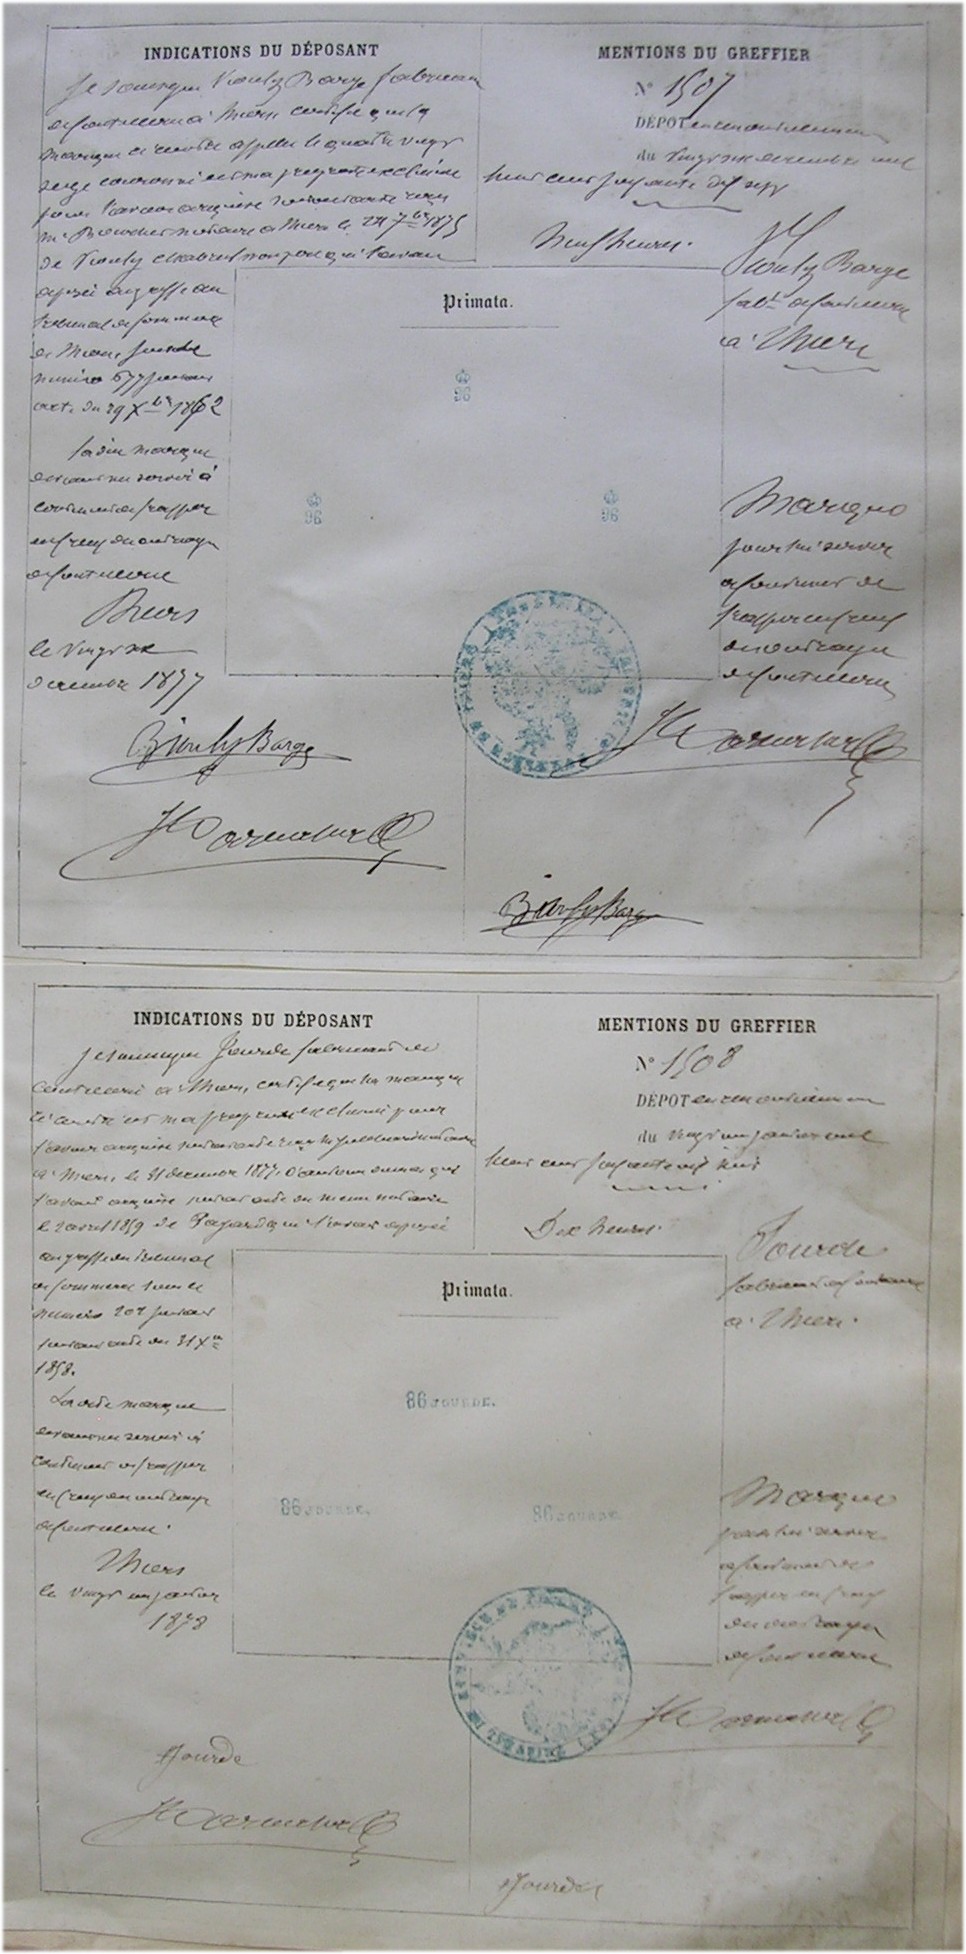 INDICATIONS DU DÉPOSANT
Je soussigné Barge fabricant
de coutellerie à Thiers certifie que la
marque ci contre appelée le quatre vingt
seize couronné est ma propriété exclusive
pour l'avoir acquise suivant acte reçu
Me notaire à Thiers le 7bre 1875
de
déposé au greffe du
tribunal de commerce
de Thiers sous le
numéro 677 suivant
acte du 29 Xbre 1862
La dite marque
devant me servir à
continuer de frapper
en creux du ouvrages
de coutellerie
Thiers
le vingt six
décembre 1877
Barge
MENTIONS DU GREFFIER
N° 1507
DÉPOT en renouvellement
du vingt six décembre mil
huit cent soixante dix sept
Neuf heures.
Barge
fabt de coutellerie
à Thiers
Primata.
96
96 96
Marque
pour lui servir
à continuer de
frapper en creux
du ouvrages
de coutellerie
Barge
INDICATIONS DU DÉPOSANT
Je soussigné Jourde fabricant de
coutellerie à Thiers, certifie que la marque
ci contre est ma propriété exclusive pour
l'avoir acquise suivant acte reçu notaire
à Thiers, le 31 décembre 1877,
l'avait acquise suivant acte du même notaire
le 2 avril 1859 de qui l'avait déposé
au greffe du tribunal
de commerce sous le
numéro 207 suivant
suivant acte du 31 Xbre
1858.
La dite marque
devant me servir à
continuer de frapper
en creux du ouvrages
de coutellerie.
Thiers
le vingt un janvier
1878
Jourde
MENTIONS DU GREFFIER
N° 1508
DÉPOT en renouvellement
du vingt un janvier mil
huit cent soixante dix huit
Dix heures.
Jourde
fabricant de coutellerie
à Thiers.
Primata.
86 JOURDE.
86 JOURDE. 86 JOURDE.
Marque
pour lui servir
à continuer de
frapper en creux
du ouvrages
de coutellerie
Jourde